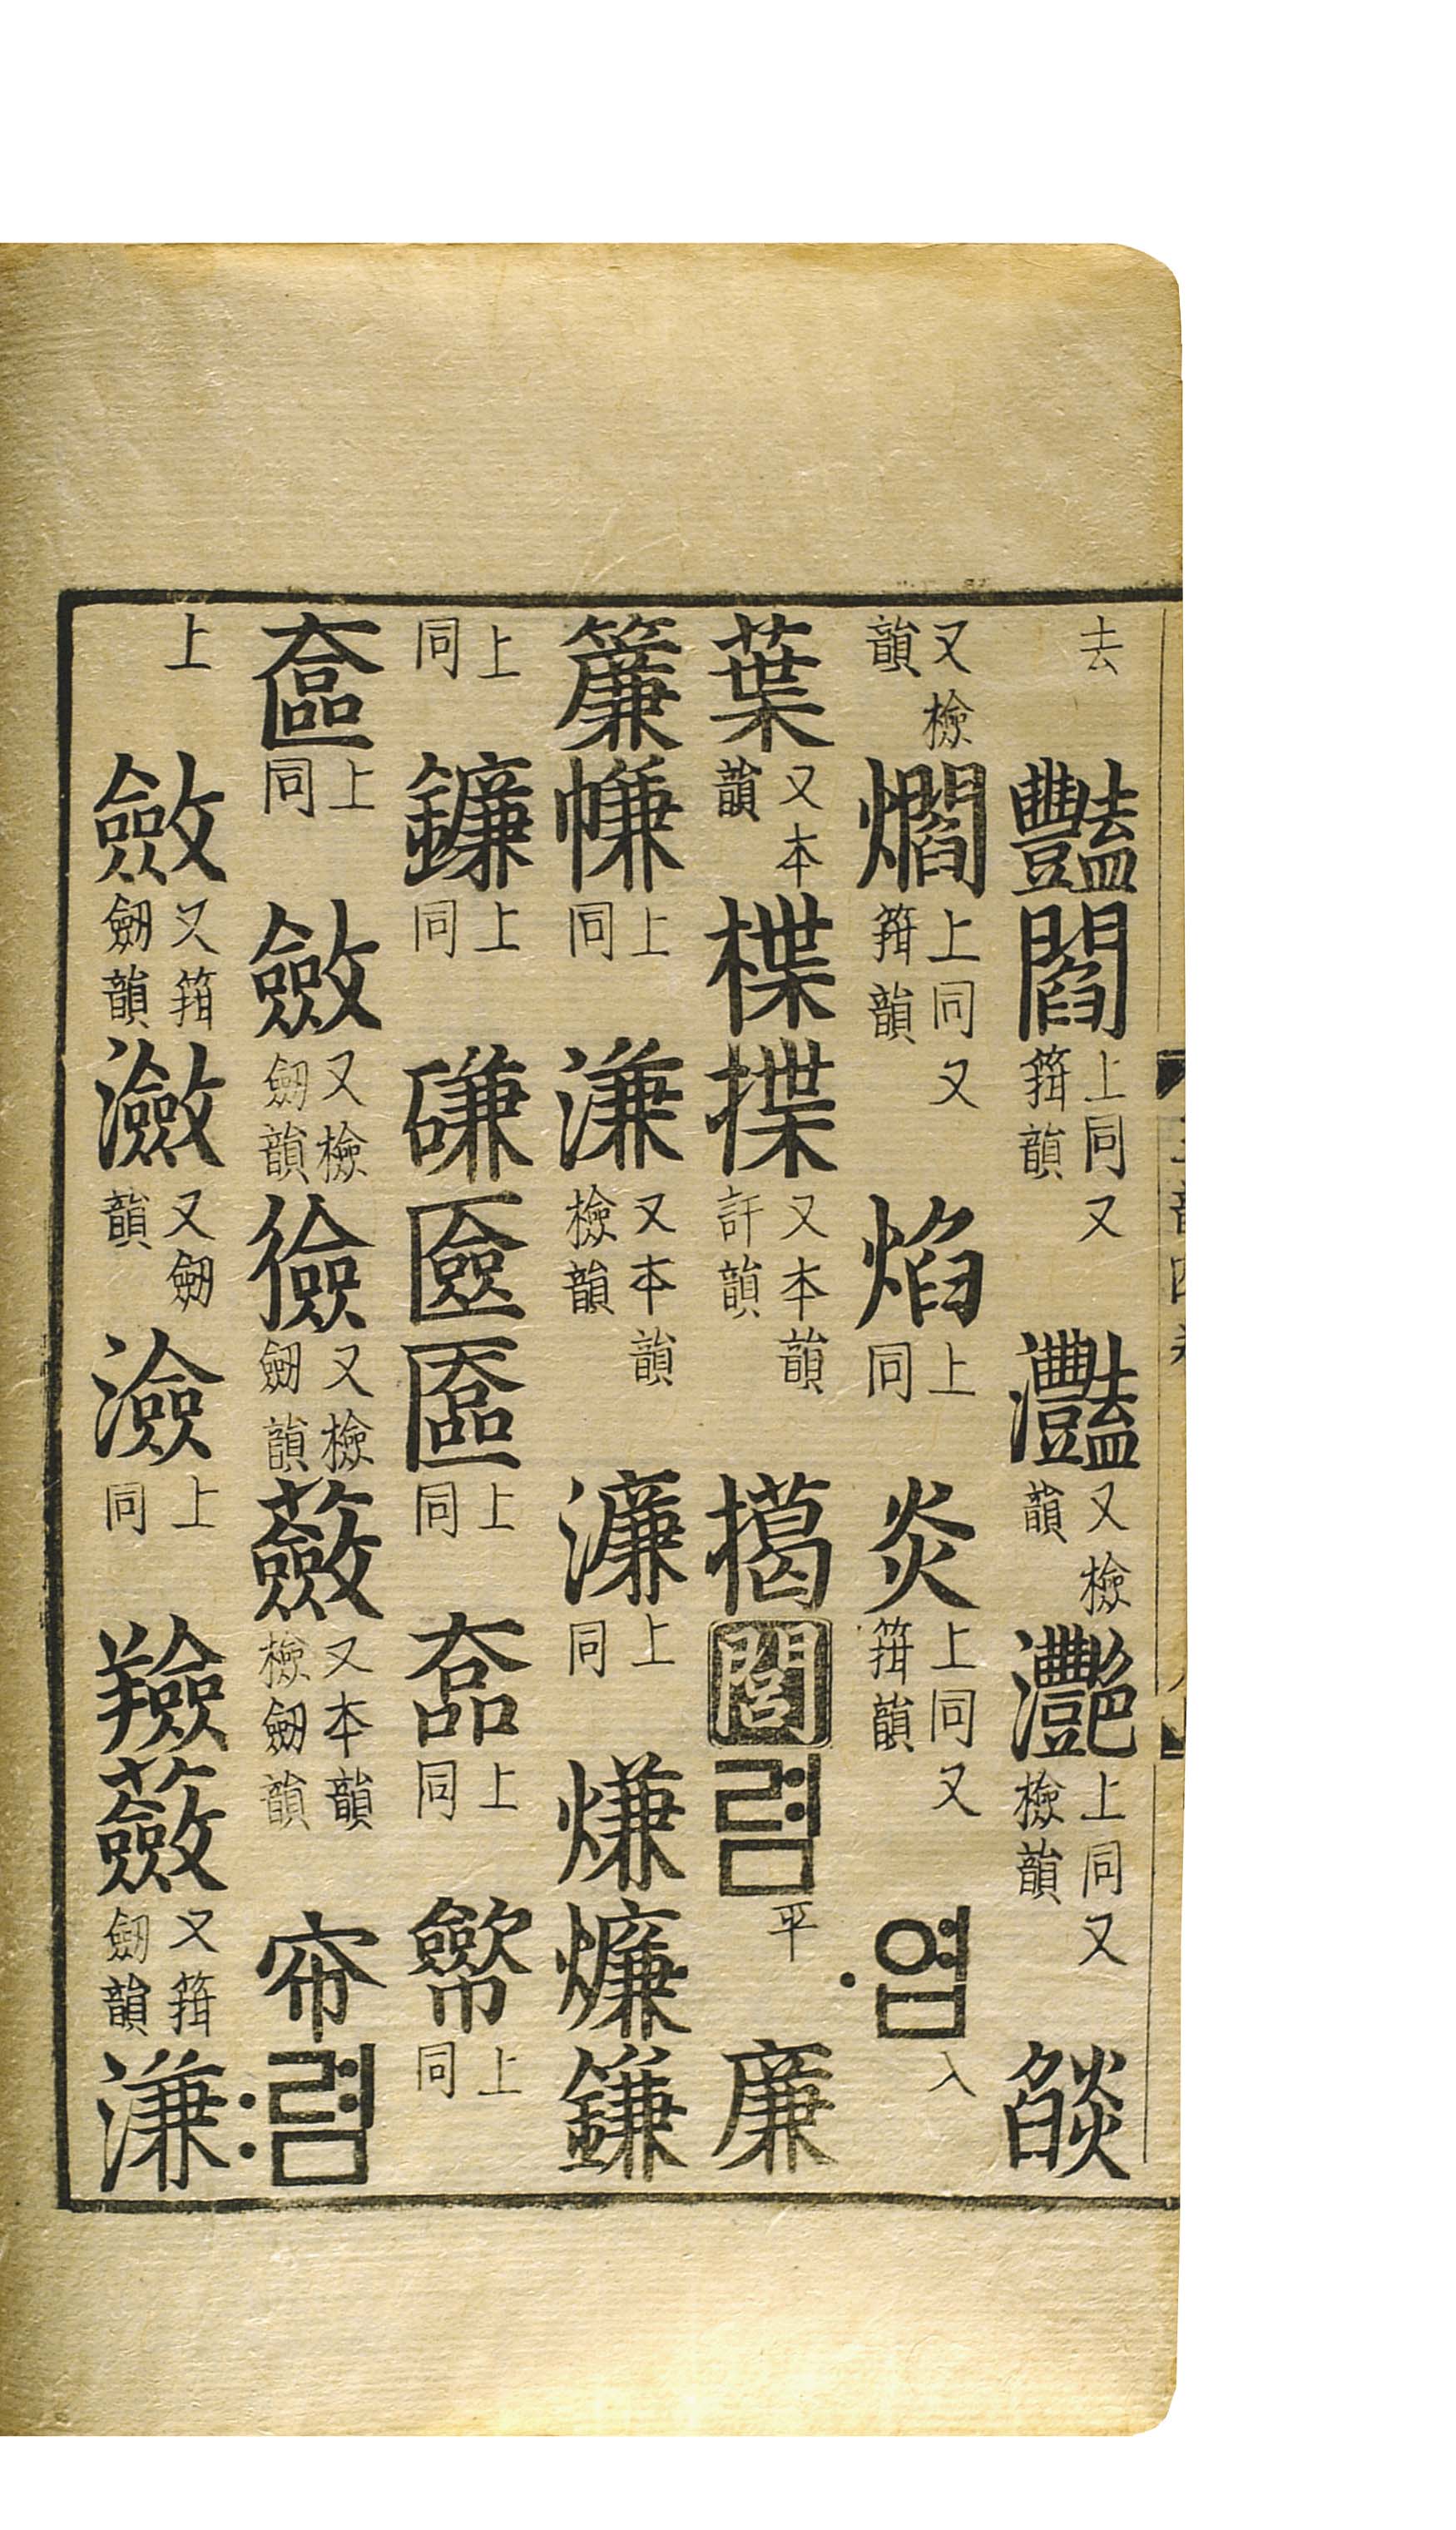 去 豔 閻 上同又箝韻 灎 又檢韻 灔 上同又檢韻 燄
又檢韻 爓 上同又箝韻 焰 上同 炎 上同又箝韻 ·엽 入
葉 又本韻 楪 揲 又本韻訐韻 擖 閻 렴 平 廉
簾 㡘 上同 溓 又本韻檢韻 濂 上同 熑 燫 鎌
上同 鐮 上同 磏 匳 匲 上同 㕓 上同 上同
奩 上同 斂 又檢劒韻 䌞 又檢劒韻 蘞 又本韻檢劒韻 帘 :렴
上 斂 又箝劒韻 瀲 又劒韻 澰 上同 羷 蘞 又箝劒韻 溓